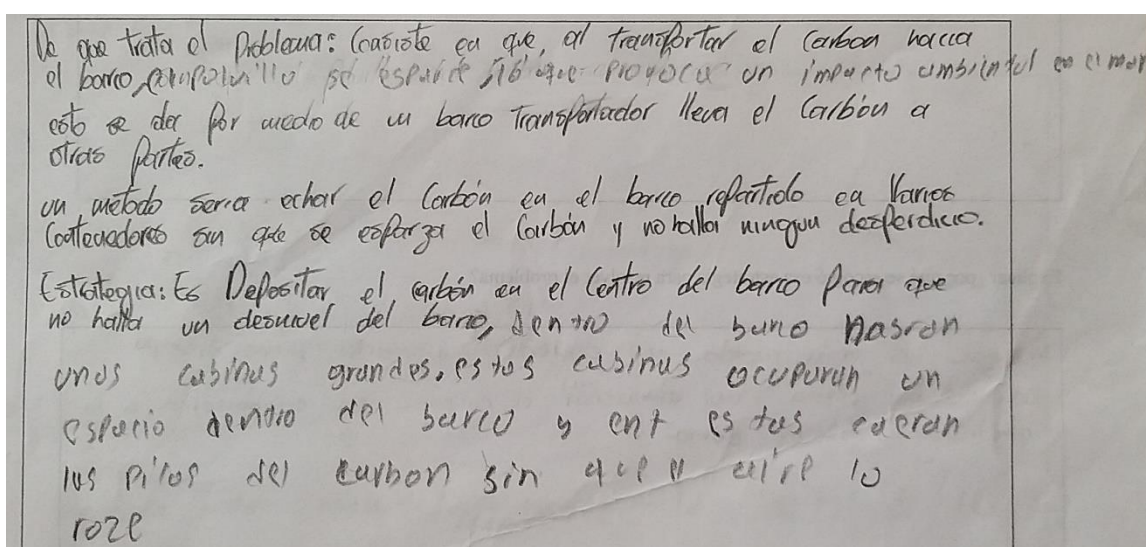 De que trata el Problema: Consiste en que, al transportar el Carbon hacia
el barco, un polvillo se esparce lo que provoca un impacto ambiental en el mar
esto se da por medio de un barco Transportador lleva el Carbón a
otras Partes.
un metodo seria echar el Carbón en el barco repartido en Varios
Contenedores sin que se esparza el Carbón y no halla ningun desperdicio.
Estrategia: Es Depositar el carbón en el Centro del barco Para que
no halla un desnivel del barco, dentro del barco Habran
unas cabinas grandes, estas cabinas ocuparan un
espacio dentro del barco y en estas caeran
las pilas del carbon sin que el aire lo
roze